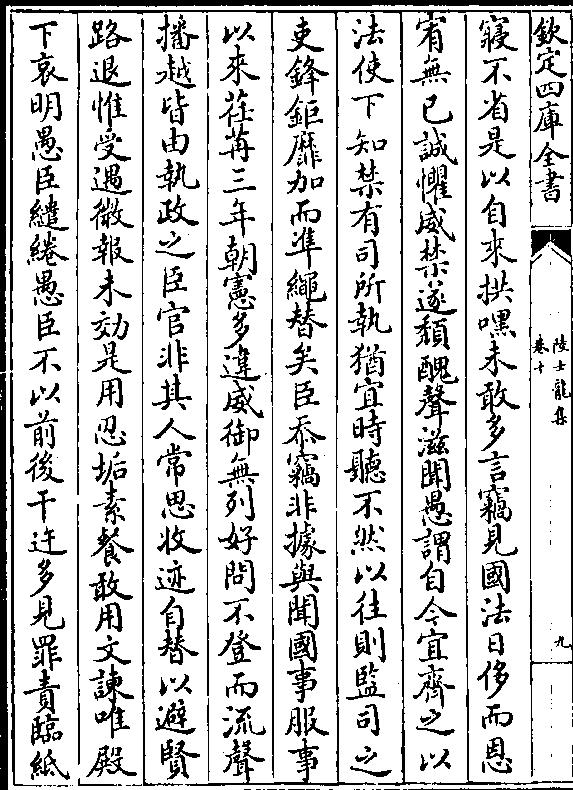 欽定四庫全書
陸士龍集
卷十
九
寢不省是以自來拱嘿未敢多言竊見國法日侈而恩
宥無已誠懼威禁遂頽醜聲滋聞愚謂自今宜齊之以
法使下知禁有司所執猶宜時聽不然以往則監司之
吏鋒鉅靡加而準繩替矣臣忝竊非據與聞國事服事
以來荏苒三年朝憲多違威御無列好問不登而流聲
播越皆由執政之臣官非其人常思收迹自替以避賢
路退惟受遇微報未効是用忍垢素餐敢用文諫唯殿
下哀明愚臣繾綣愚臣不以前後干迕多見罪責臨紙